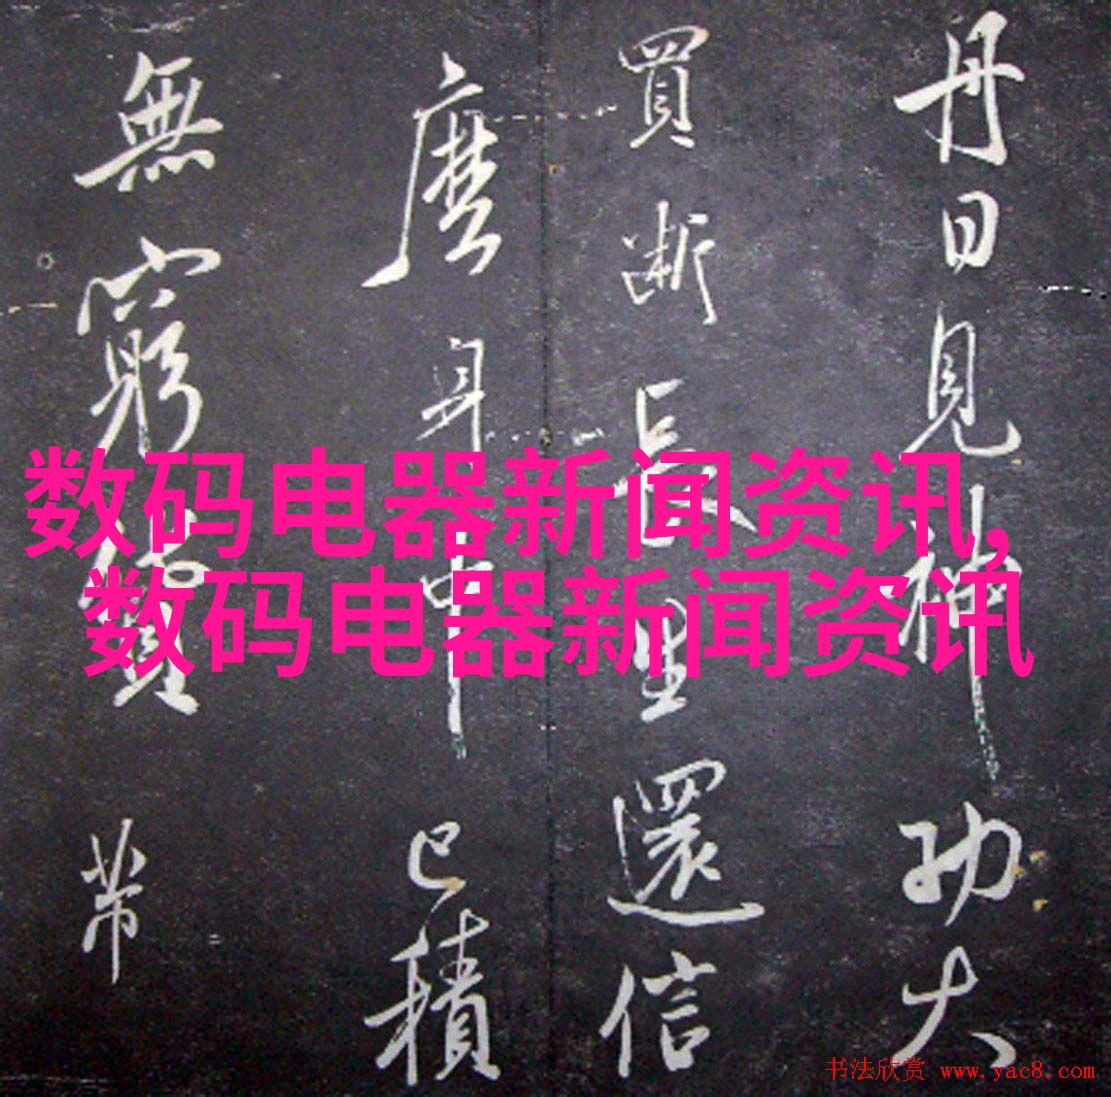 丹日見神功大
買斷長里還信
麼身中已積
無窮錢帶
数码电器新闻资讯,
数码电器新闻资讯
书法欣赏 www.yac8.com